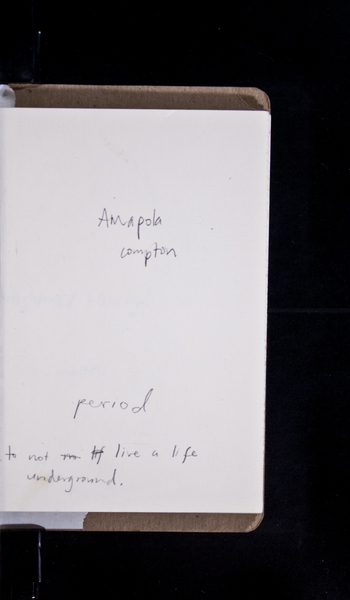 Amapola
compton
period
to not live a life
underground.